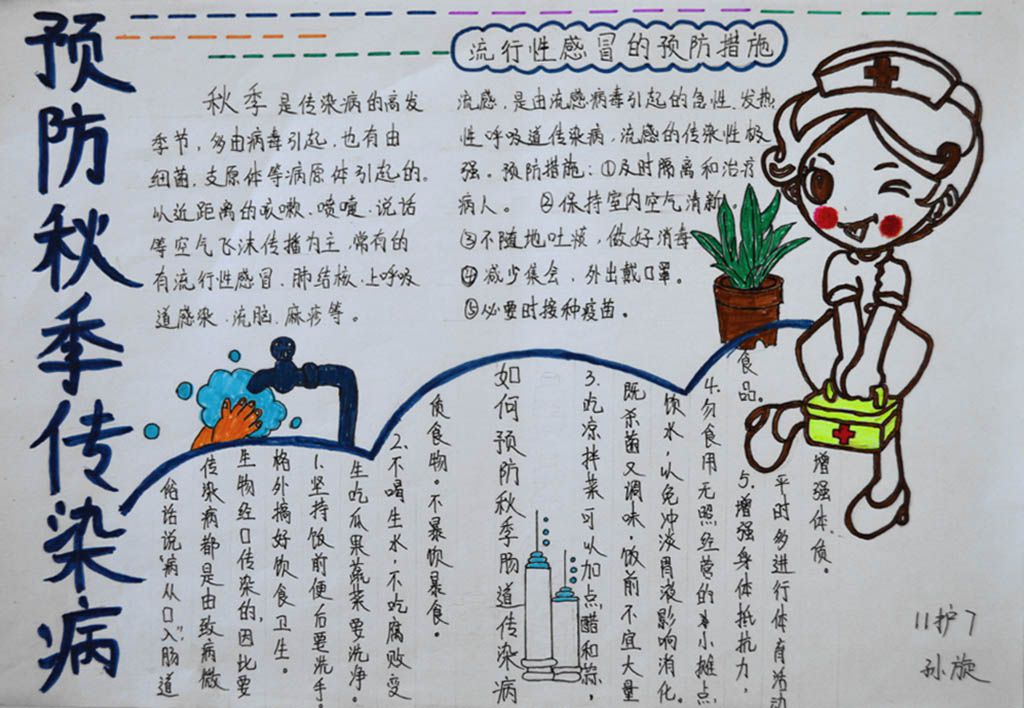 预防秋季传染病
秋季是传染病的高发
季节，多由病毒引起，也有由
细菌、支原体等病原体引起的。
以近距离的咳嗽、喷嚏、说话
等空气飞沫传播为主，常有的
有流行性感冒、肺结核、上呼吸
道感染、流脑、麻疹等。
流行性感冒的预防措施
流感，是由流感病毒引起的急性、发热
性呼吸道传染病，流感的传染性极
强。预防措施：①及时隔离和治疗
病人。②保持室内空气清新。
③不随地吐痰，做好消毒
④减少集会，外出戴口罩。
⑤必要时接种疫苗。
如何预防秋季肠道传染病
俗话说“病从口入”，肠道
传染病都是由致病微
生物经口传染的，因比要
格外搞好饮食卫生。
1.坚持饭前便后要洗手。
生吃瓜果蔬菜要洗净。
2.不喝生水，不吃腐败变
质食物。不暴饮暴食。
3.吃凉拌菜可以加点醋和蒜，
既杀菌又调味，饭前不宜大量
饮水，以免冲淡胃液影响消化。
4.勿食用无照经营的小摊点
食品。 5.增强身体抵抗力，
平时多进行体育活动
增强体质。
11护7
孙旋